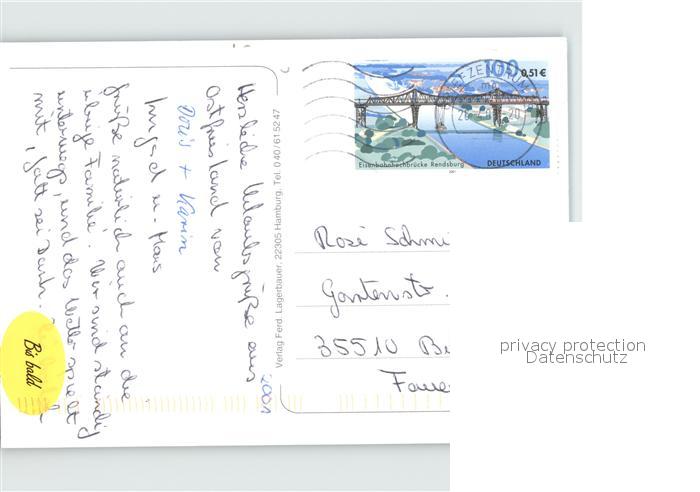 Herzliche Urlaubsgrüße aus
Ostfriesland von
Doris + Karin
Irmgard u. Hans
Grüße natürlich auch an die
übrige Familie. Wir sind ständig
unterwegs, und das Wetter spielt
mit, Gott sei Dank.
2001
Bis bald
Verlag Ferd. Lagerbauer, 22305 Hamburg, Tel. 0 40/61 52 47
100
0,51 €
Eisenbahnhochbrücke Rendsburg
DEUTSCHLAND
2001
BRIEFZENTRUM
Rosé Schmi
Gartenstr.
35510 Bu
privacy protection
Datenschutz